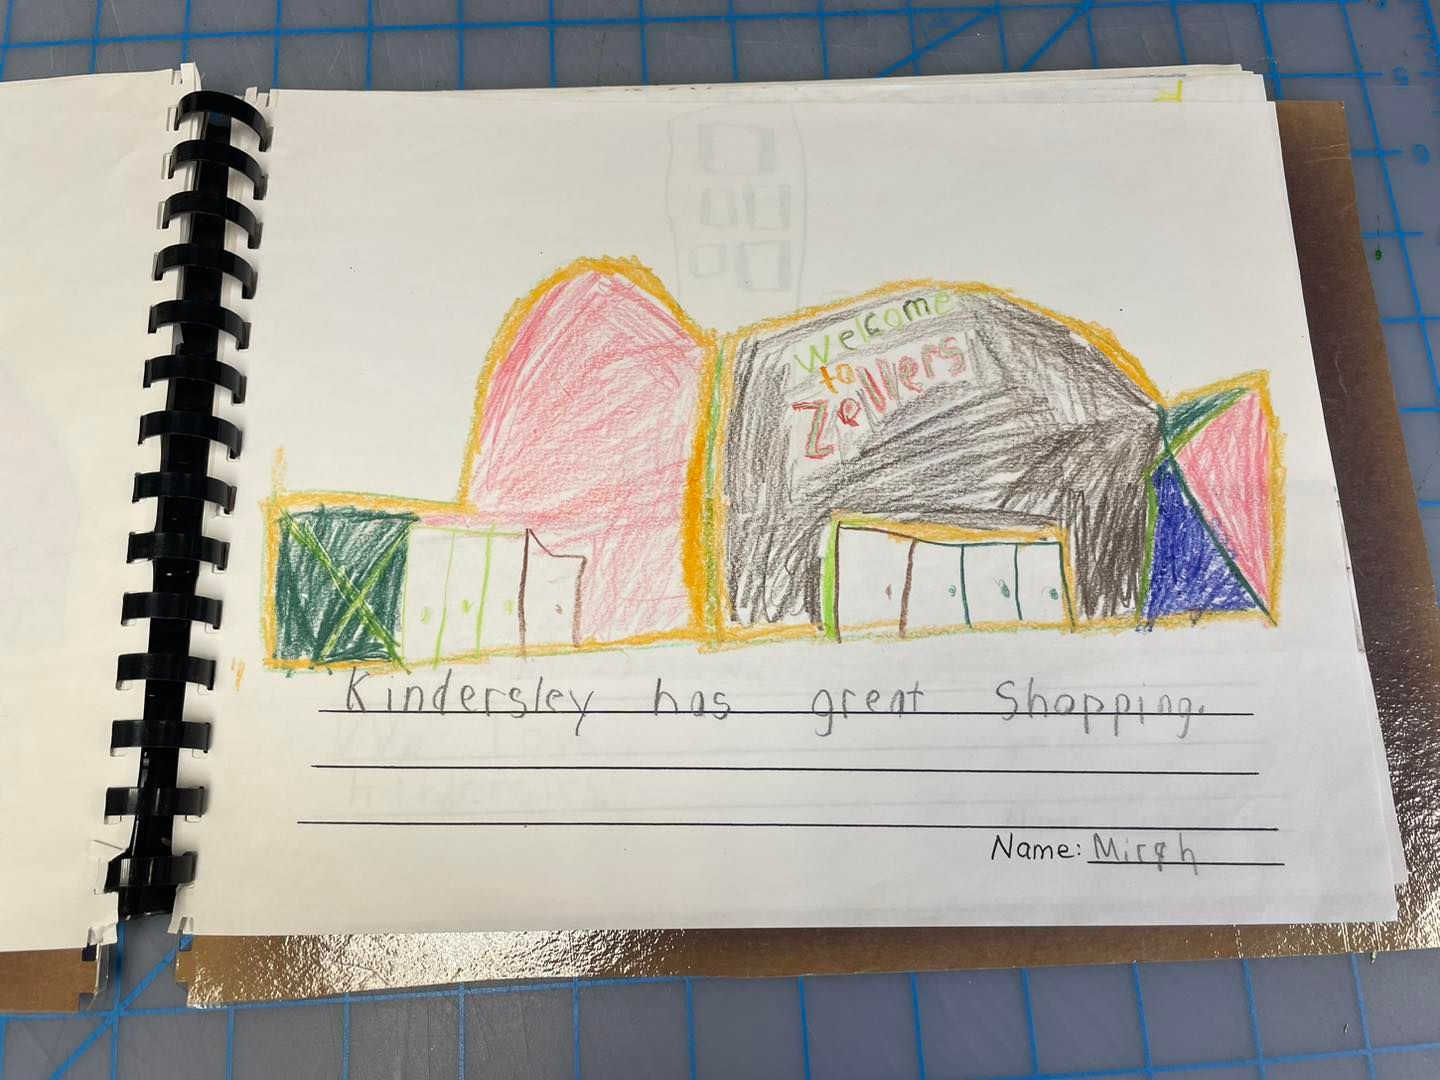 Welcome
to
Zellers
Kindersley has great Shopping.
Name: